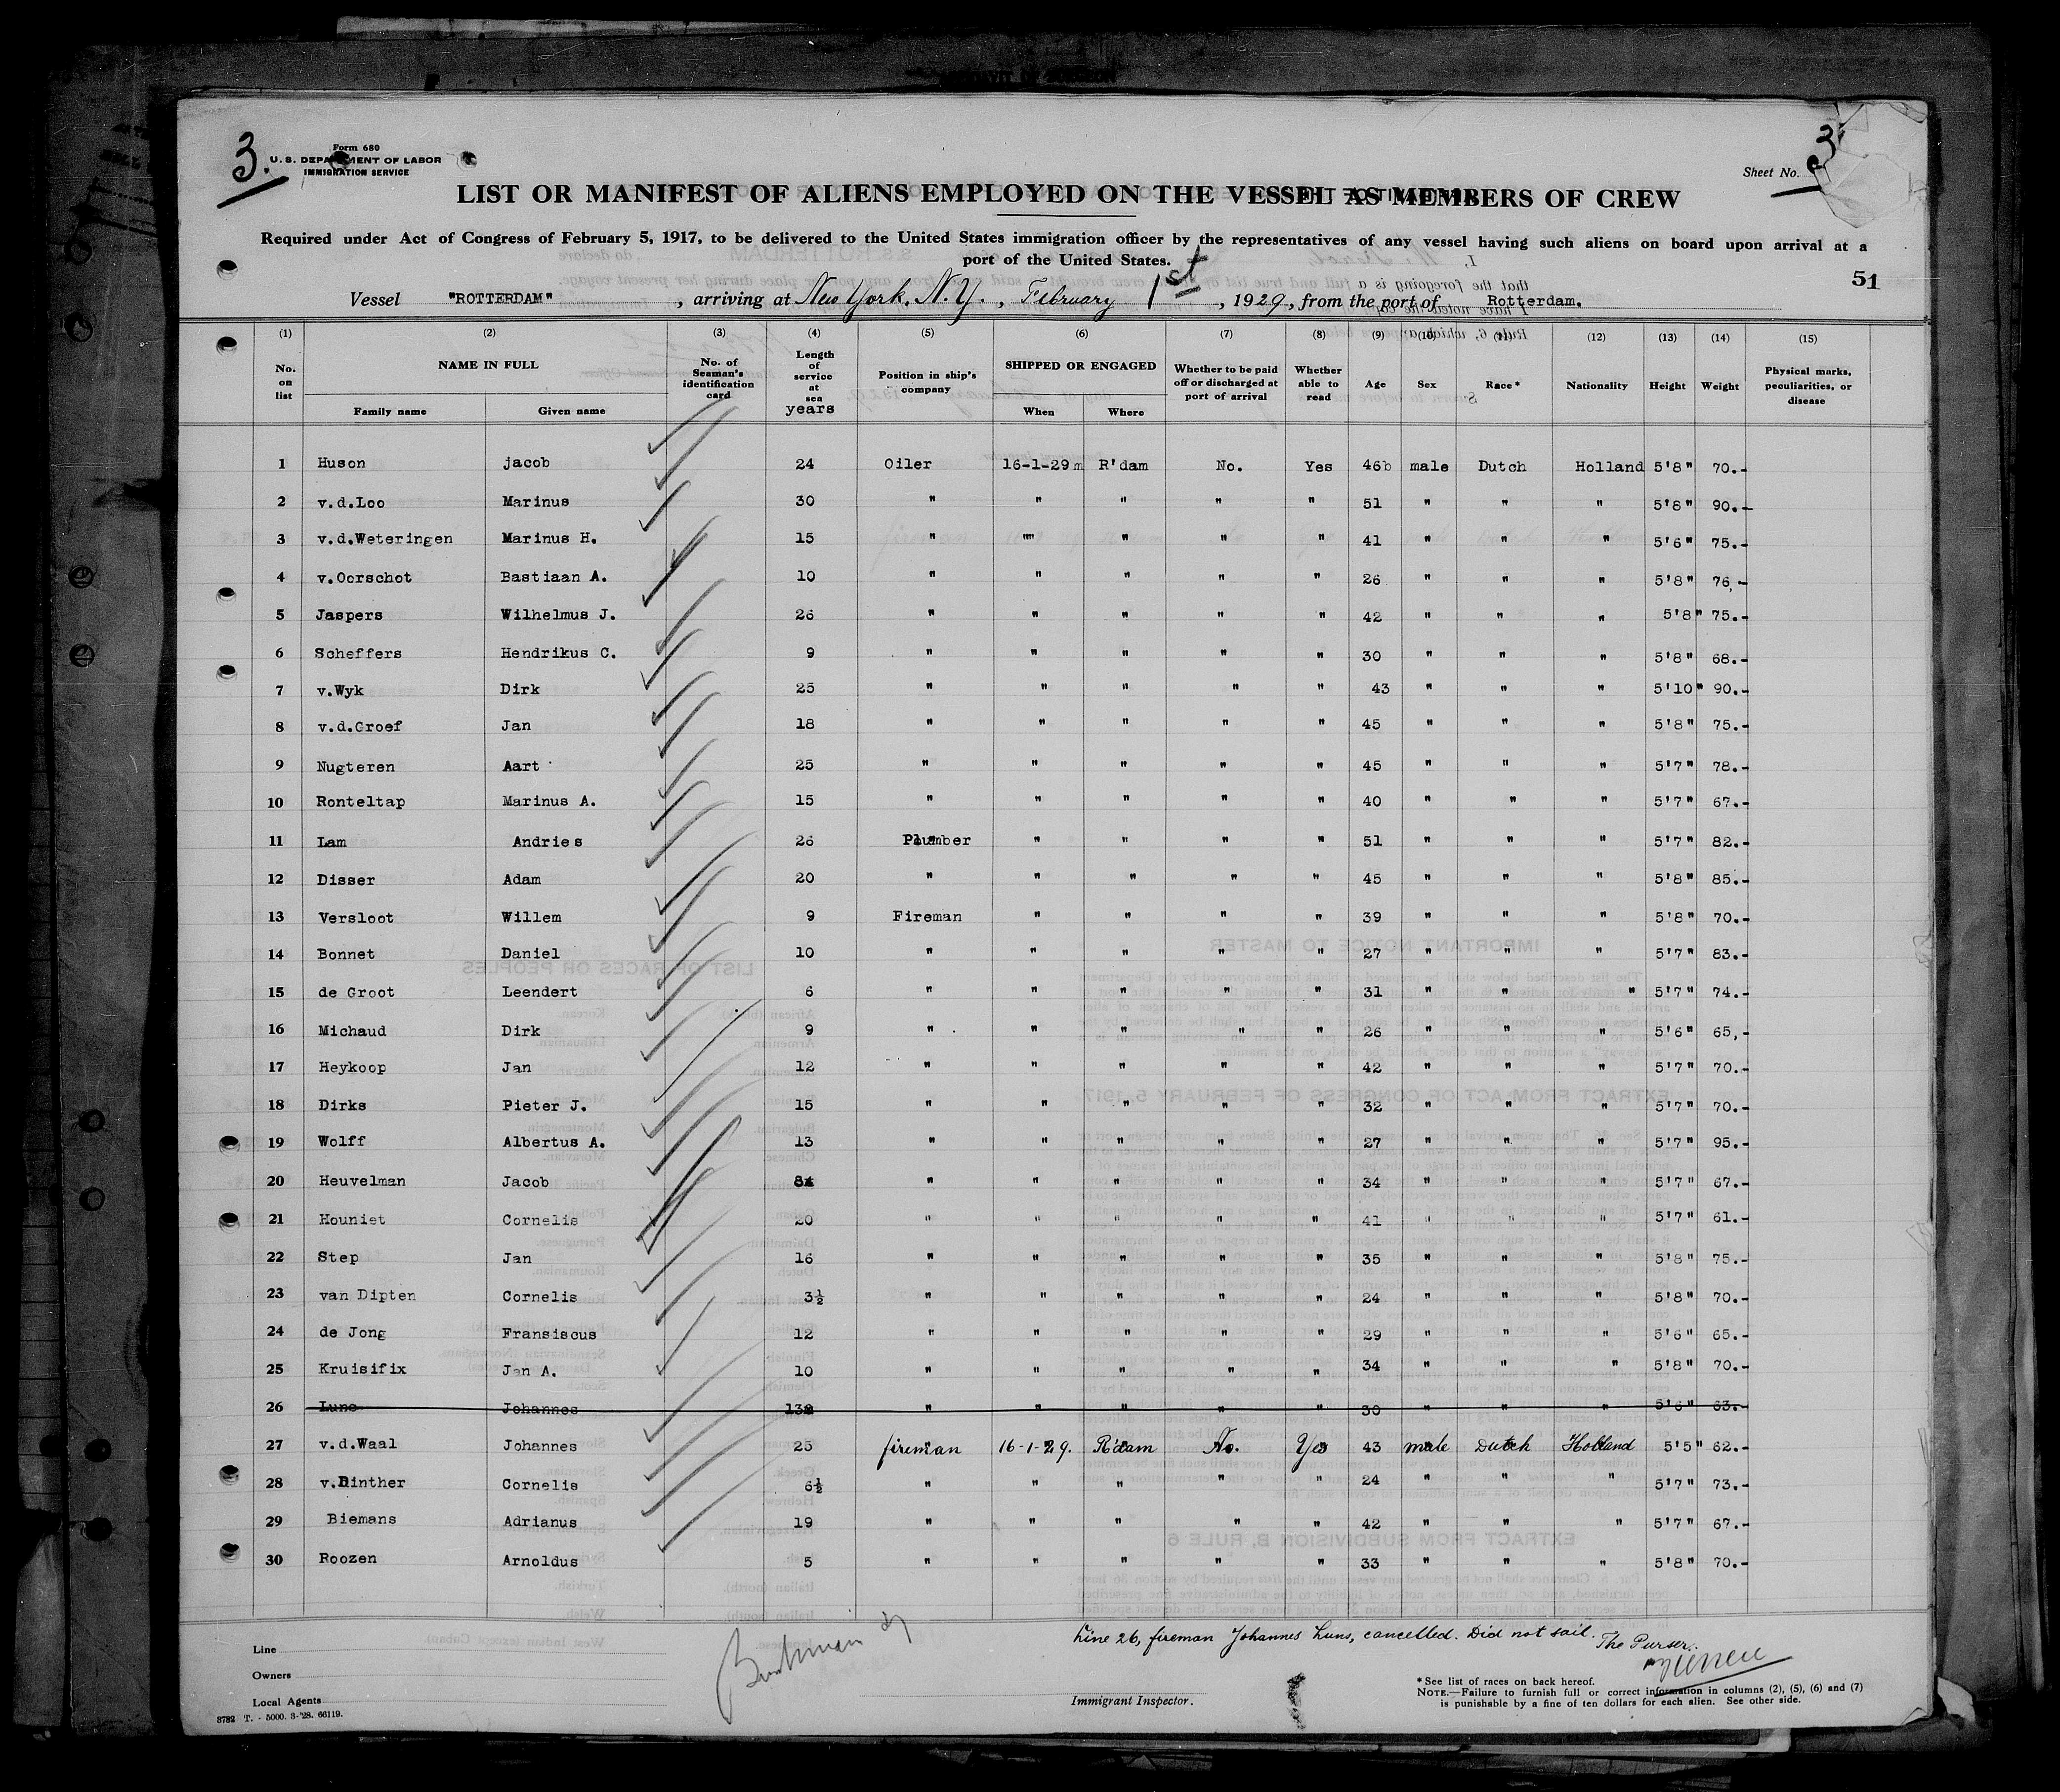 3.
Form 680
U. S. DEPARTMENT OF LABOR
IMMIGRATION SERVICE
Sheet No. 3
LIST OR MANIFEST OF ALIENS EMPLOYED ON THE VESSEL AS MEMBERS OF CREW
Required under Act of Congress of February 5, 1917, to be delivered to the United States immigration officer by the representatives of any vessel having such aliens on board upon arrival at a
port of the United States.
51
Vessel "ROTTERDAM", arriving at New York, N.Y., February 1st, 1929, from the port of Rotterdam.
(1) (2) (3) (4) (5) (6) (7) (8) (9) (10) (11) (12) (13) (14) (15)
No. on list NAME IN FULL Family name Given name No. of Seaman's identification card Length of service at sea years Position in ship's company SHIPPED OR ENGAGED When Where Whether to be paid off or discharged at port of arrival Whether able to read Age Sex Race* Nationality Height Weight Physical marks, peculiarities, or disease
1 Huson jacob 24 Oiler 16-1-29m R'dam No. Yes 46b male Dutch Holland 5'8" 70.-
2 v.d.Loo Marinus 30 " " " " " 51 " " " 5'8" 90.-
3 v.d.Weteringen Marinus H. 15 " "" " " " 41 " " " 5'6" 75.-
4 v.Oorschot Bastiaan A. 10 " " " " " 26 " " " 5'8" 76,-
5 Jaspers Wilhelmus J. 26 " " " " " 42 " " " 5'8" 75.-
6 Scheffers Hendrikus C. 9 " " " " " 30 " " " 5'8" 68.-
7 v.Wyk Dirk 25 " " " " " 43 " " " 5'10" 90.-
8 v.d.Groef Jan 18 " " " " " 45 " " " 5'8" 75.-
9 Nugteren Aart 25 " " " " " 45 " " " 5'7" 78.-
10 Ronteltap Marinus A. 15 " " " " " 40 " " " 5'7" 67.-
11 Lam Andries 26 Plumber " " " " 51 " " " 5'7" 82.-
12 Disser Adam 20 " " " " " 45 " " " 5'8" 85.-
13 Versloot Willem 9 Fireman " " " " 39 " " " 5'8" 70.-
14 Bonnet Daniel 10 " " " " " 27 " " " 5'7" 83.-
15 de Groot Leendert 6 " " " " " 31 " " " 5'7" 74.-
16 Michaud Dirk 9 " " " " " 26 " " " 5'6" 65,-
17 Heykoop Jan 12 " " " " " 42 " " " 5'7" 70.-
18 Dirks Pieter J. 15 " " " " " 32 " " " 5'7" 70.-
19 Wolff Albertus A. 13 " " " " " 27 " " " 5'7" 95.-
20 Heuvelman Jacob " " " " " 34 " " " 5'7" 67.-
21 Houniet Cornelis 20 " " " " " 41 " " " 5'7" 61.-
22 Step Jan 16 " " " " " 35 " " " 5'8" 75.-
23 van Dipten Cornelis 3½ " " " " " 24 " " " 5'8" 70.-
24 de Jong Fransiscus 12 " " " " " 29 " " " 5'6" 65.-
25 Kruisifix Jan A. 10 " " " " " 34 " " " 5'8" 70.-
26 Luns Johannes " " " " " 30 " " " 5'6" 63.-
27 v.d.Waal Johannes 25 fireman 16-1-29. R'dam No. Yes 43 male Dutch Holland 5'5" 62.-
28 v.Dinther Cornelis 6½ " " " " " 24 " " " 5'7" 73.-
29 Biemans Adrianus 19 " " " " " 42 " " " 5'7" 67.-
30 Roozen Arnoldus 5 " " " " " 33 " " " 5'8" 70.-
Line 26, fireman Johannes Luns, cancelled. Did not sail. The Purser.
Line
Owners
Local Agents
Immigrant Inspector.
* See list of races on back hereof.
NOTE.—Failure to furnish full or correct information in columns (2), (5), (6) and (7)
is punishable by a fine of ten dollars for each alien. See other side.
3782 T. - 5000. 3-'28. 66119.